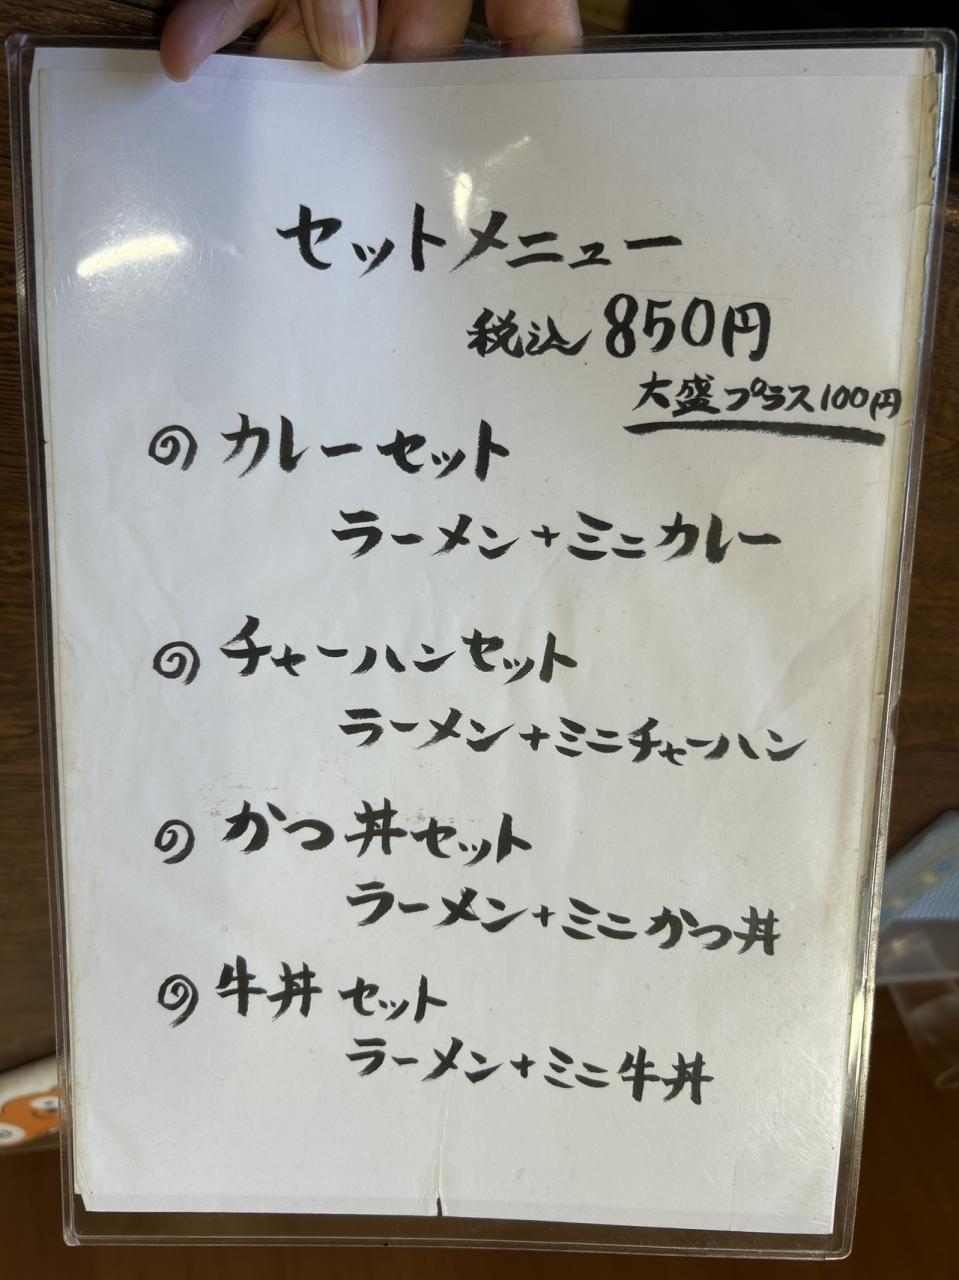 セットメニュー
税込850円
大盛プラス100円
カレーセット
ラーメン+ミニカレー
チャーハンセット
ラーメン+ミニチャーハン
かつ丼セット
ラーメン+ミニかつ丼
牛丼セット
ラーメン+ミニ牛丼